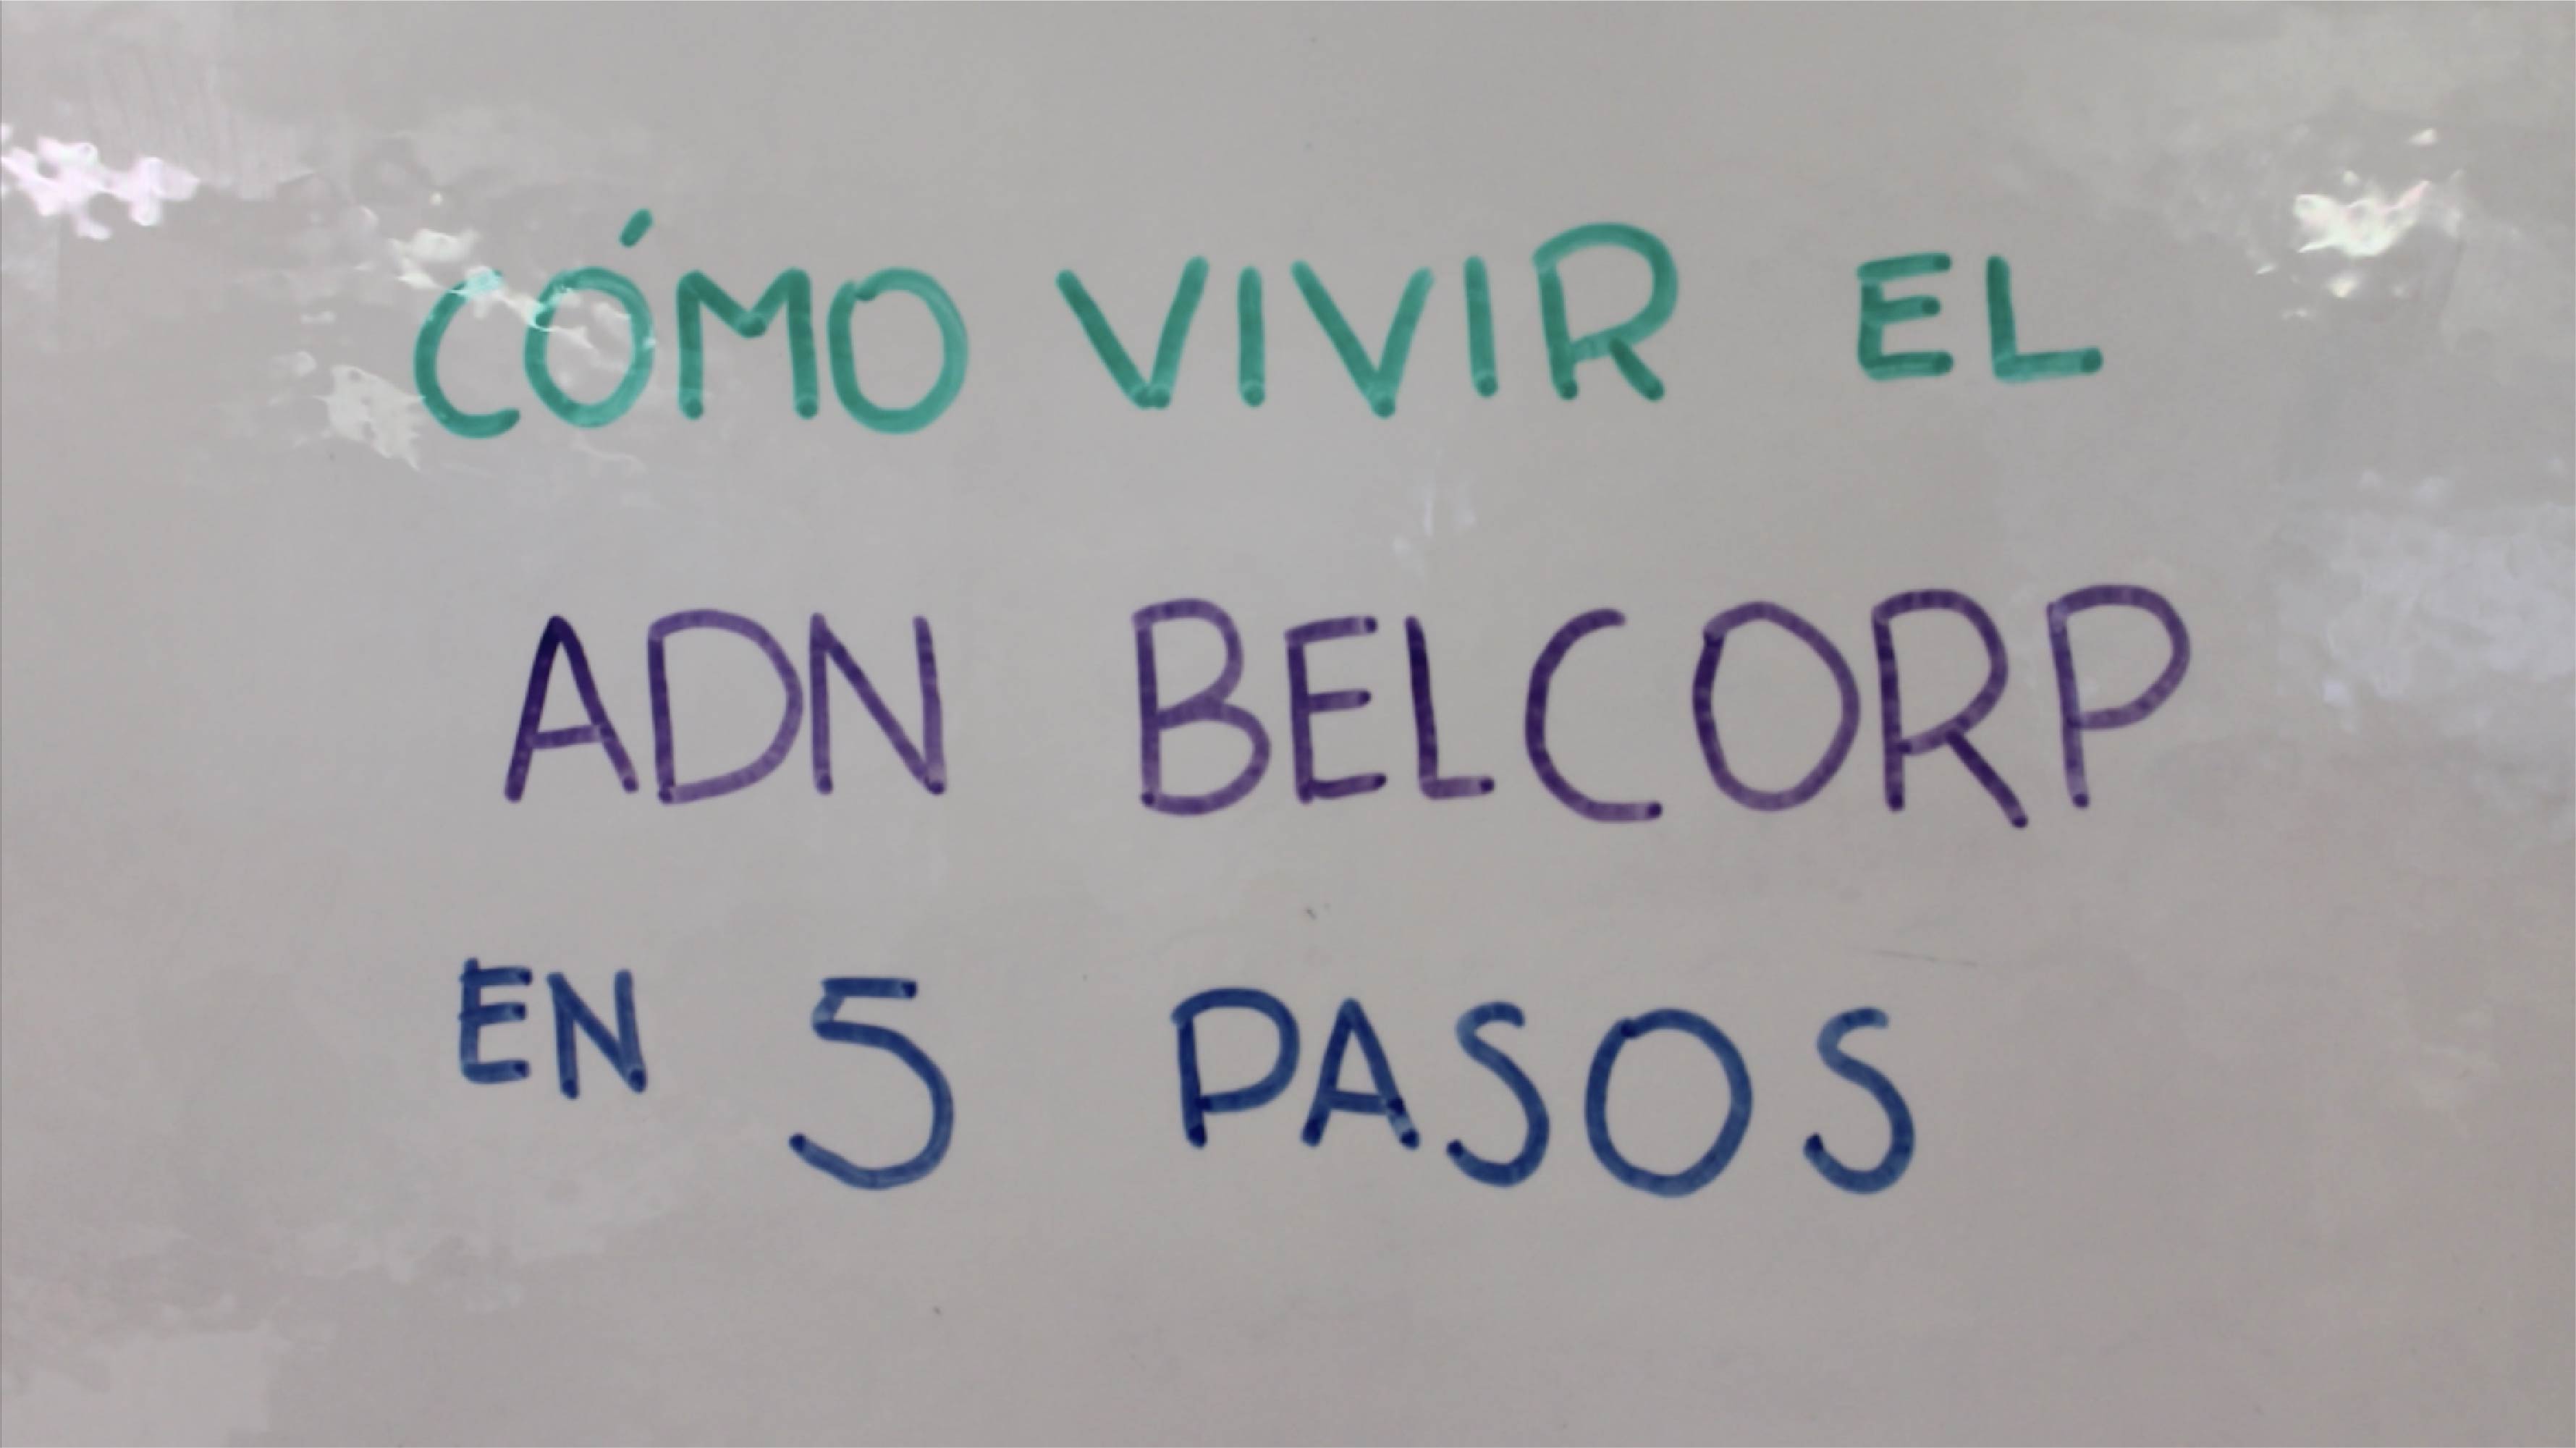 CÓMO VIVIR EL
ADN BELCORP
EN 5 PASOS